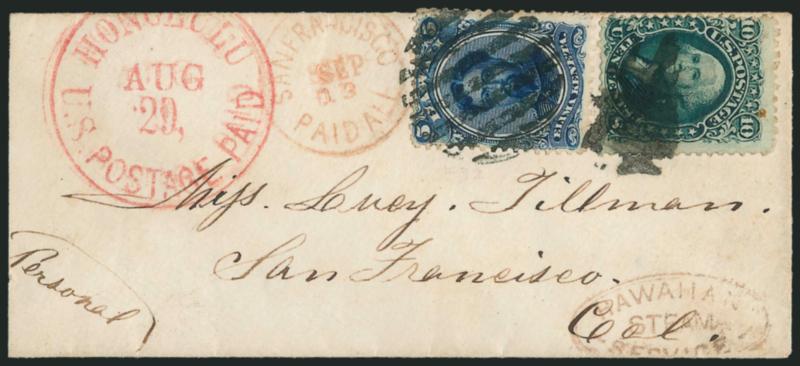 HONOLULU
AUG
29
U.S. POSTAGE PAID
SAN FRANCISCO
SEP
PAID ALL
U.S. POSTAGE
10
10
Miss. Lucy. Tillman.
San Francisco.
Cal.
Personal
HAWAIIAN
STEAM
SERVICE